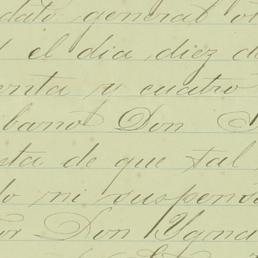 dato general or
el dia diez d
enta y cuatro
bano Don
sta de que tal
do ni suspens
or Don Ygna